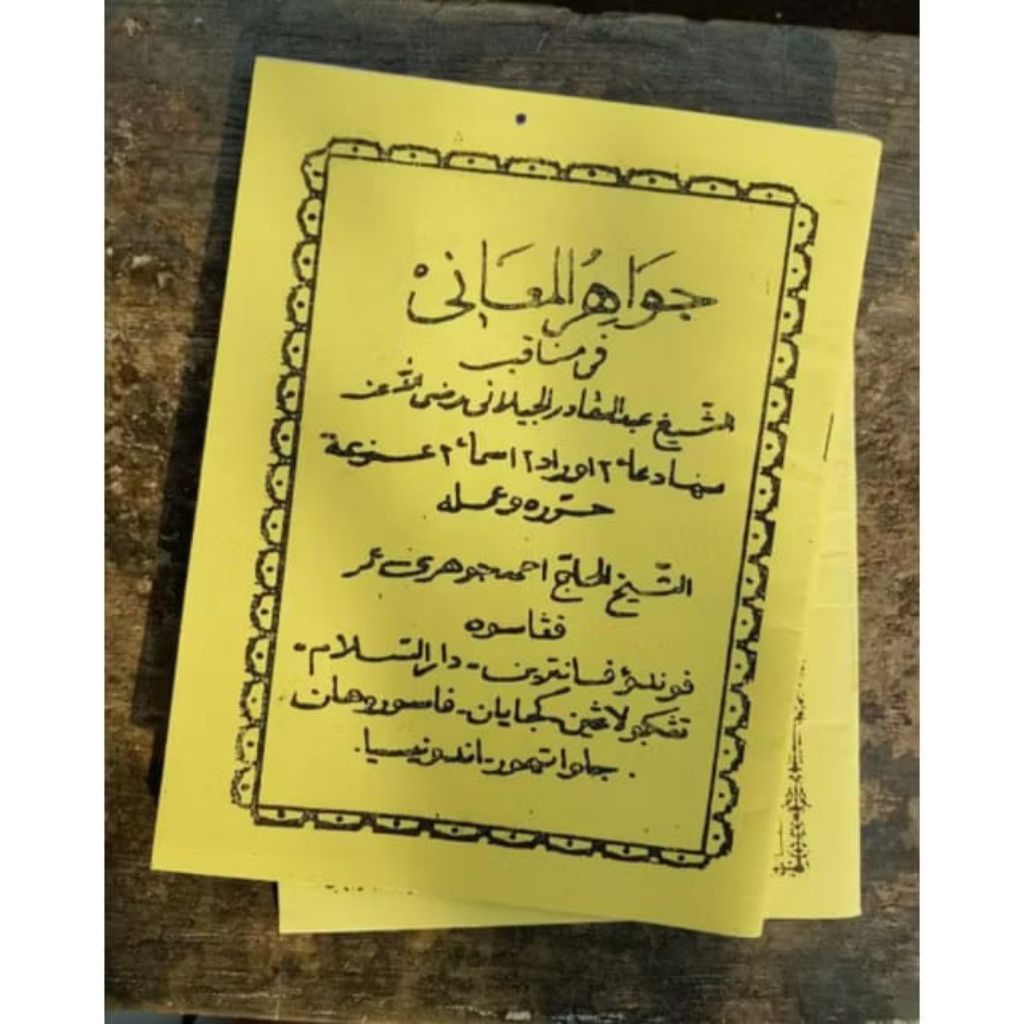 جَوَاهِرُ المَعَانِىْ
فى مناقب
الشّيخ عبدالقادر الجيلانى رضى الله عنه
دعاء ٢ اوراد ٢ اسماء ٢
حرّره وعمله
الشّيخ الحاجّ احمد جوهرى عمر
فڠاسوه
فوندؤ فسانترين - دار السّلام -
كجايان - فاسوروهان
جاوا تيمور - اندونيسيا.